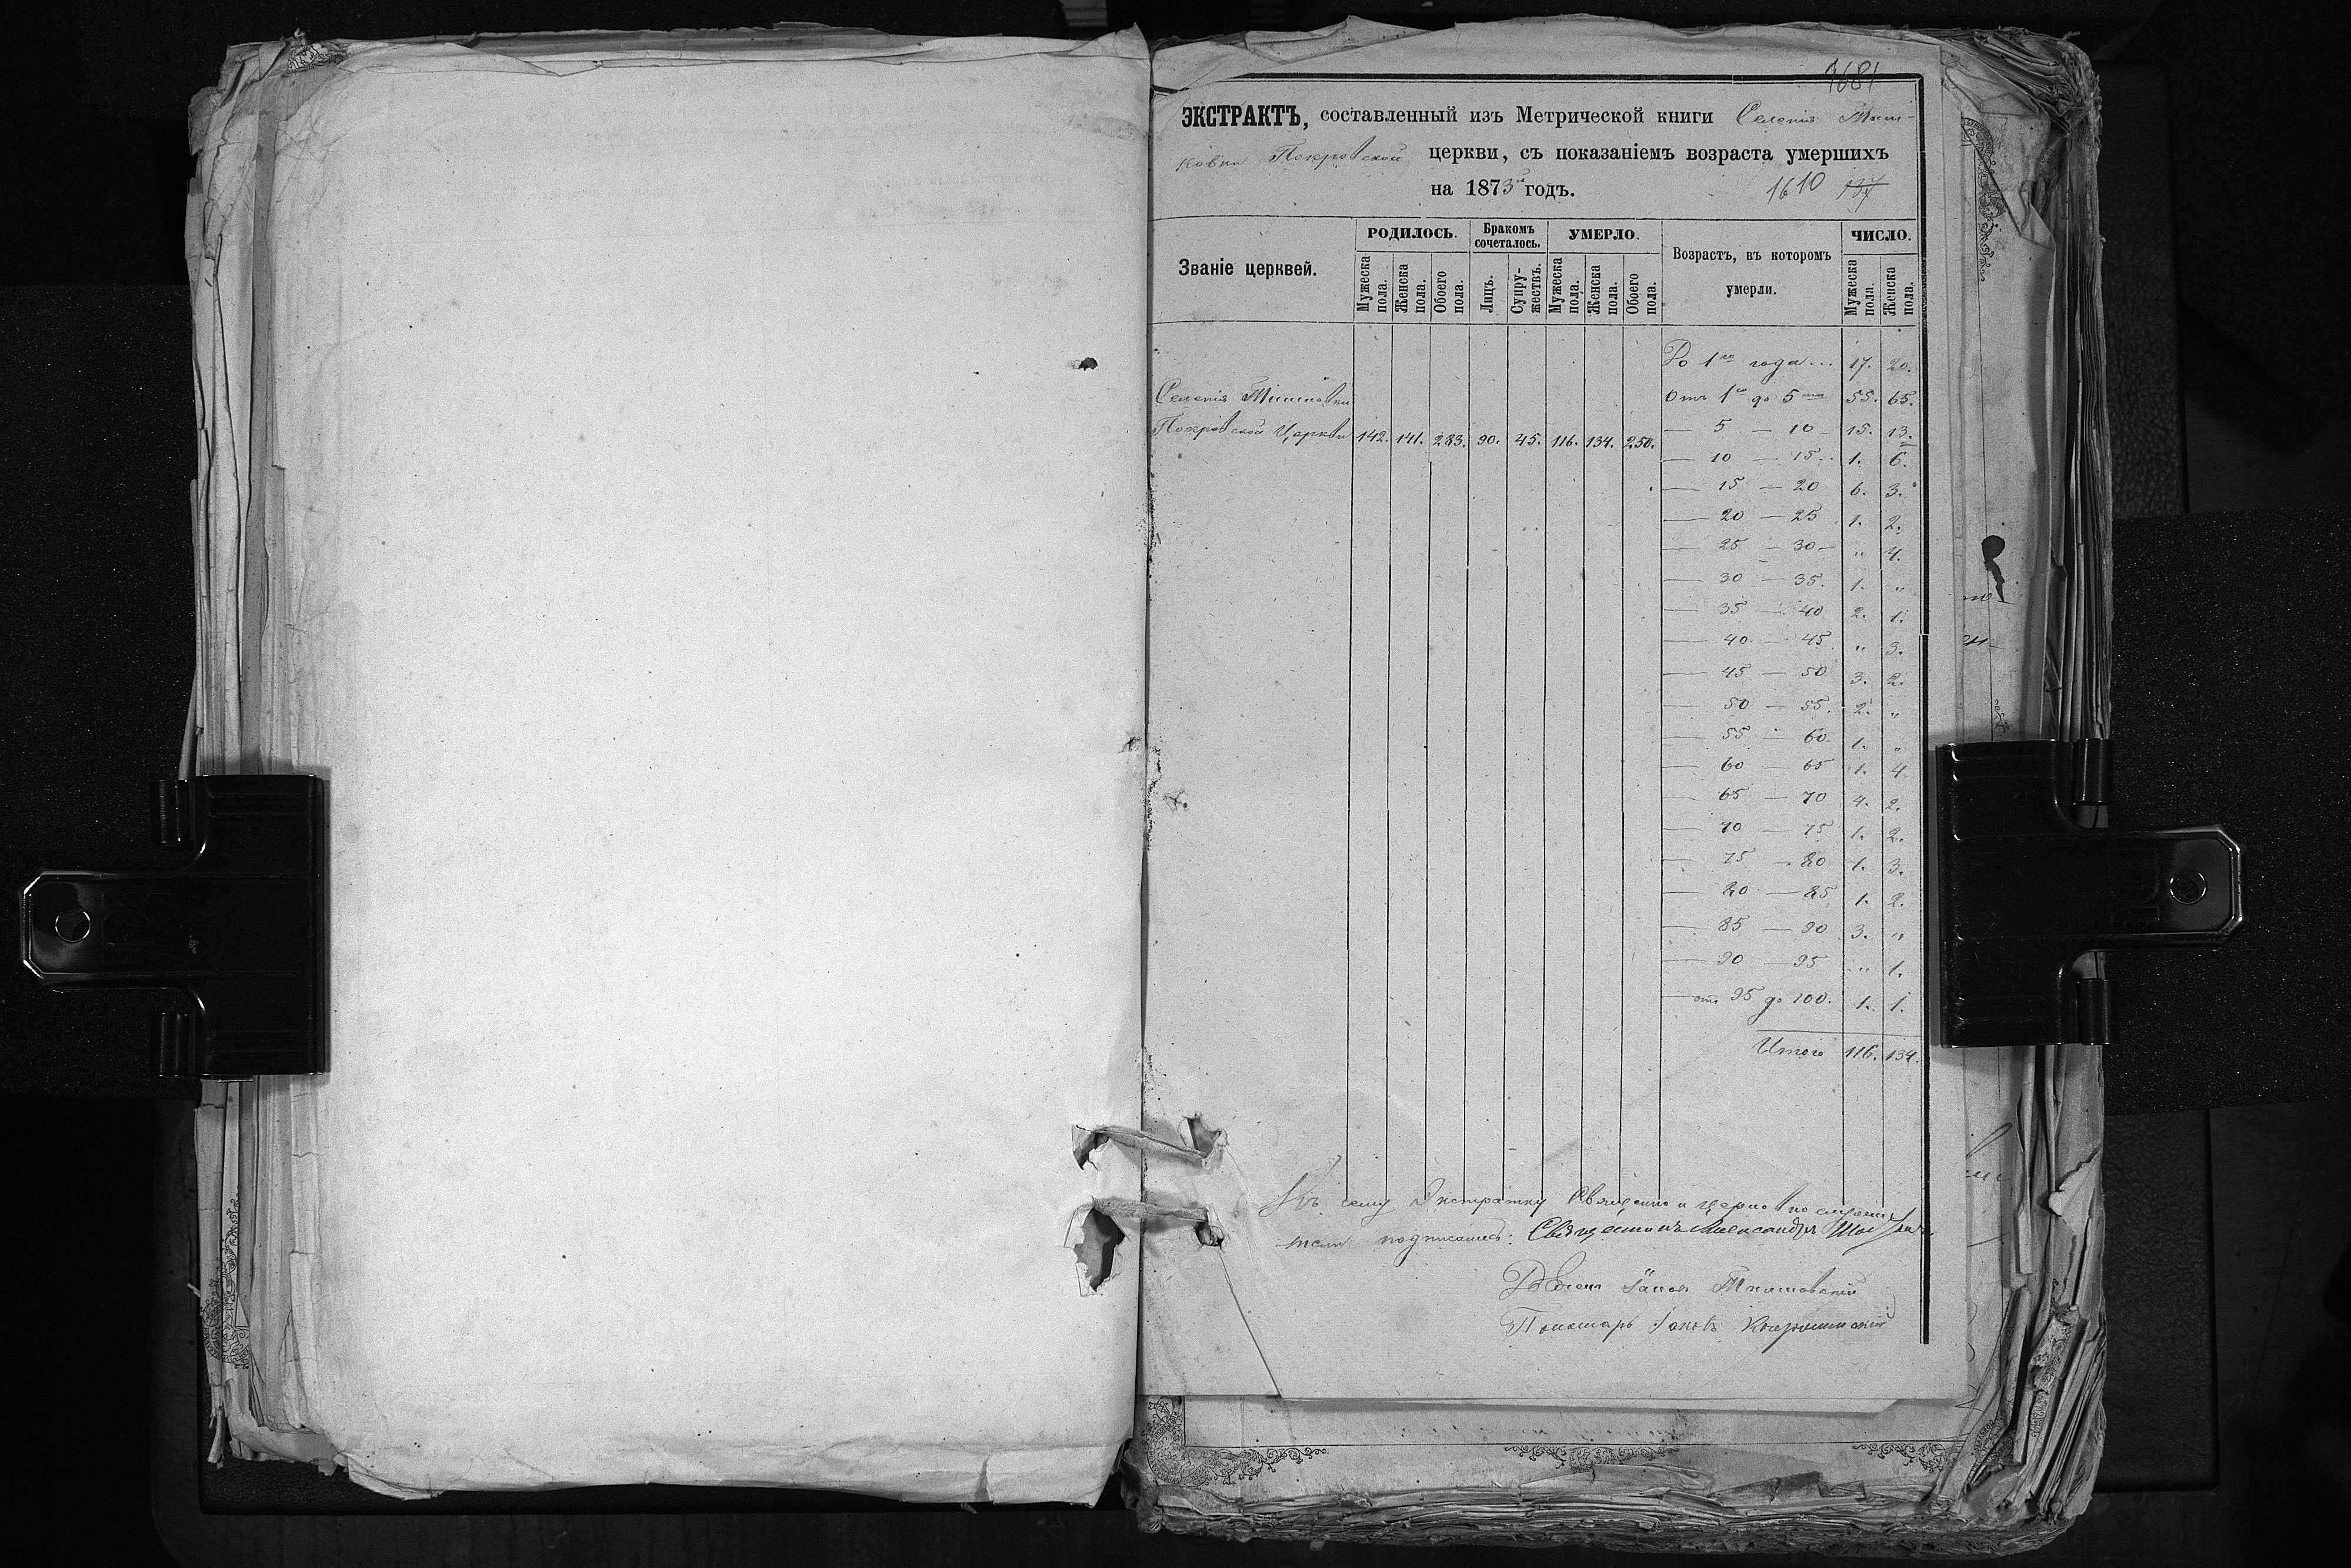 1681
ЭКСТРАКТЪ, составленный изъ Метрической книги Селенія Тиш-
ковки Покровской церкви, съ показаніемъ возраста умершихъ
на 1873й годъ. 1610 137
Званіе церквей. РОДИЛОСЬ. Бракомъ сочеталось. УМЕРЛО. Возрастъ, въ которомъ умерли. ЧИСЛО.
Мужеска пола. Женска пола. Обоего пола. Лицъ. Супружествъ. Мужеска пола. Женска пола. Обоего пола. Мужеска пола. Женска пола.
До 1го года... 17. 20.
Селенія Тишковки Отъ 1го до 5ти 55. 65.
Покровской Церкви 142. 141. 283. 90. 45. 116. 134. 250. — 5 — 10 — 15. 13.
— 10 — 15.. 1. 6.
— 15 — 20 6. 3.
— 20 — 25 1. 2.
— 25 — 30 — " 4.
— 30 — 35. 1. "
— 35 — 40 2. 1.
— 40 — 45. " 3.
— 45 — 50 3. 2.
— 50 — 55. 2. "
— 55 — 60 1. "
— 60 — 65 1. 4.
— 65 — 70 4. 2.
— 70 — 75 1. 2.
— 75 — 80 1. 3.
— 80 — 85 1. 2.
— 85 — 90 3. "
— 90 — 95 " 1.
— отъ 95 до 100. 1. 1.
Итого 116. 134.
Къ сему Экстракту Священно и церковно служи-
тели подписались: Священникъ Александръ
Дьячекъ
Пономарь Іаковъ